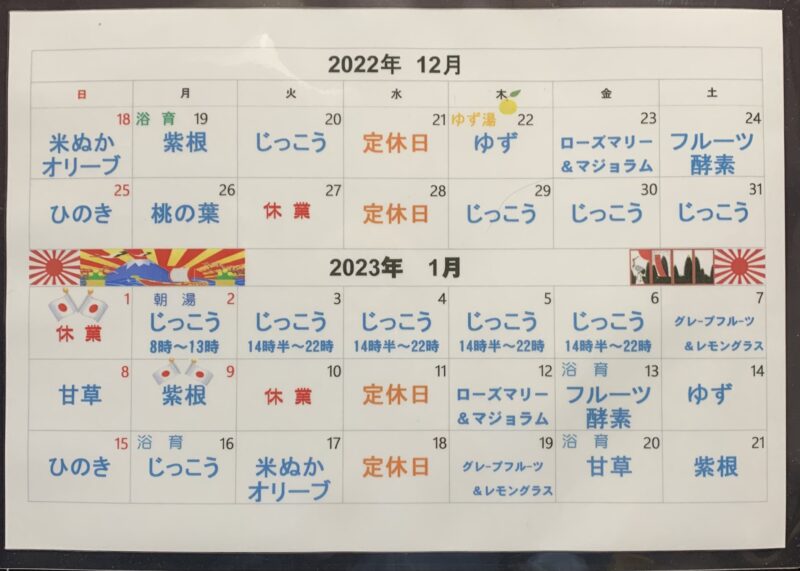 2022年 12月
日 月 火 水 木 金 土
18 浴育 19 20 21 ゆず湯 22 23 24
米ぬか 紫根 じっこう 定休日 ゆず ローズマリー フルーツ
オリーブ &マジョラム 酵素
25 26 27 28 29 30 31
ひのき 桃の葉 休業 定休日 じっこう じっこう じっこう
2023年 1月
1 朝湯 2 3 4 5 6 7
休業 じっこう じっこう じっこう じっこう じっこう グレープフルーツ
8時～13時 14時半～22時 14時半～22時 14時半～22時 14時半～22時 &レモングラス
8 9 10 11 12 浴育 13 14
甘草 紫根 休業 定休日 ローズマリー フルーツ ゆず
&マジョラム 酵素
15 浴育 16 17 18 19 浴育 20 21
ひのき じっこう 米ぬか 定休日 グレープフルーツ 甘草 紫根
オリーブ &レモングラス